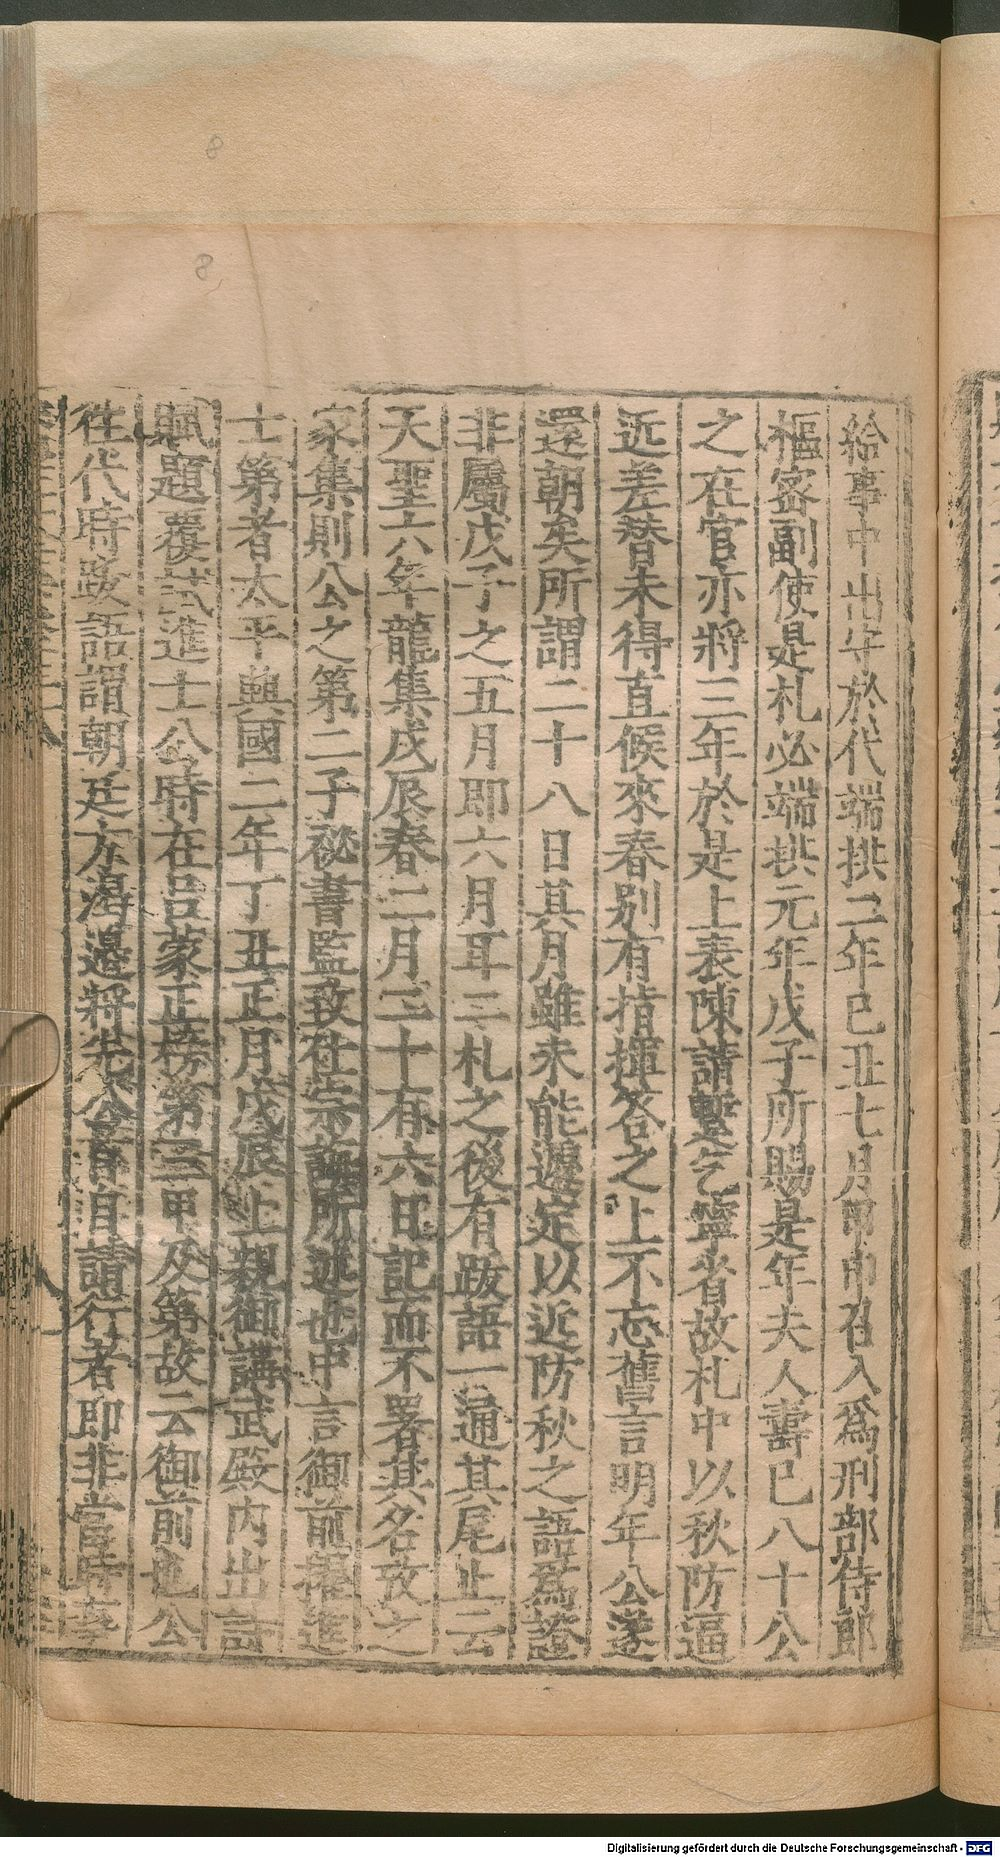 給事中出守於代端拱二年己丑七月甲申召入爲刑部侍郎
樞密副使是札必端拱元年戊子所賜是年夫人壽已八十公
之在官亦將三年於是上表陳請蹔乞寧省故札中以秋防逼
近差替未得直候來春別有指揮答之上不忘舊言明年公遂
還朝矣所謂二十八日其月雖未能遽定以近防秋之語爲證
非屬戊子之五月即六月耳二札之後有跋語一通其尾止云
天聖六年龍集戊辰春二月三十有六日記而不署其名攷之
家集則公之第二子祕書監致仕宗誨所述也中言御前擢進
士第者太平興國二年丁丑正月戊辰上親御講武殿內出詩
賦題覆試進士公時在呂蒙正榜第三甲及第故云御前也公
徃代時跋語謂朝廷方渴邊將先公首自請行者即非當時事
8
8
Digitalisierung gefördert durch die Deutsche Forschungsgemeinschaft - DFG